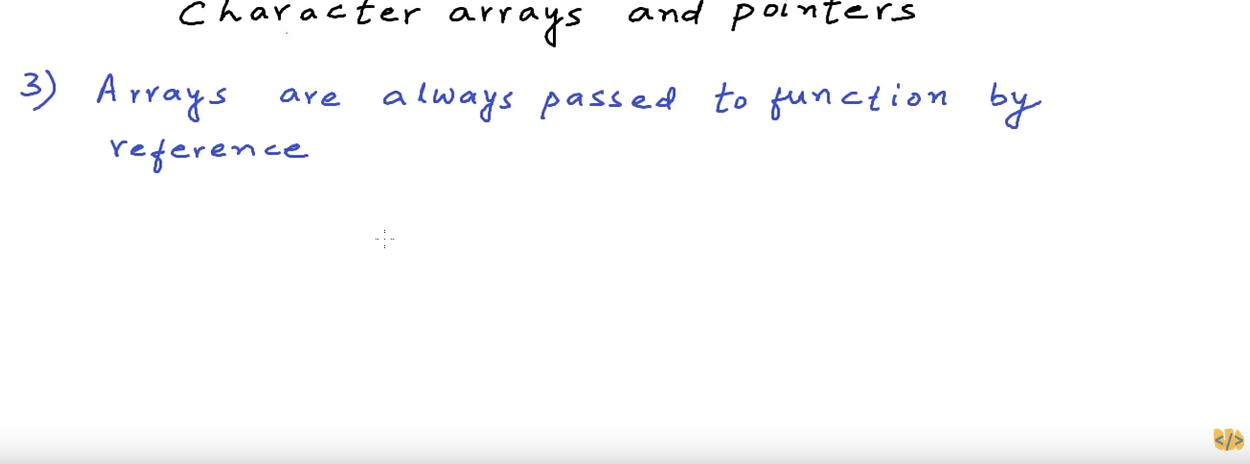 Character arrays and pointers
3) Arrays are always passed to function by
reference
</>